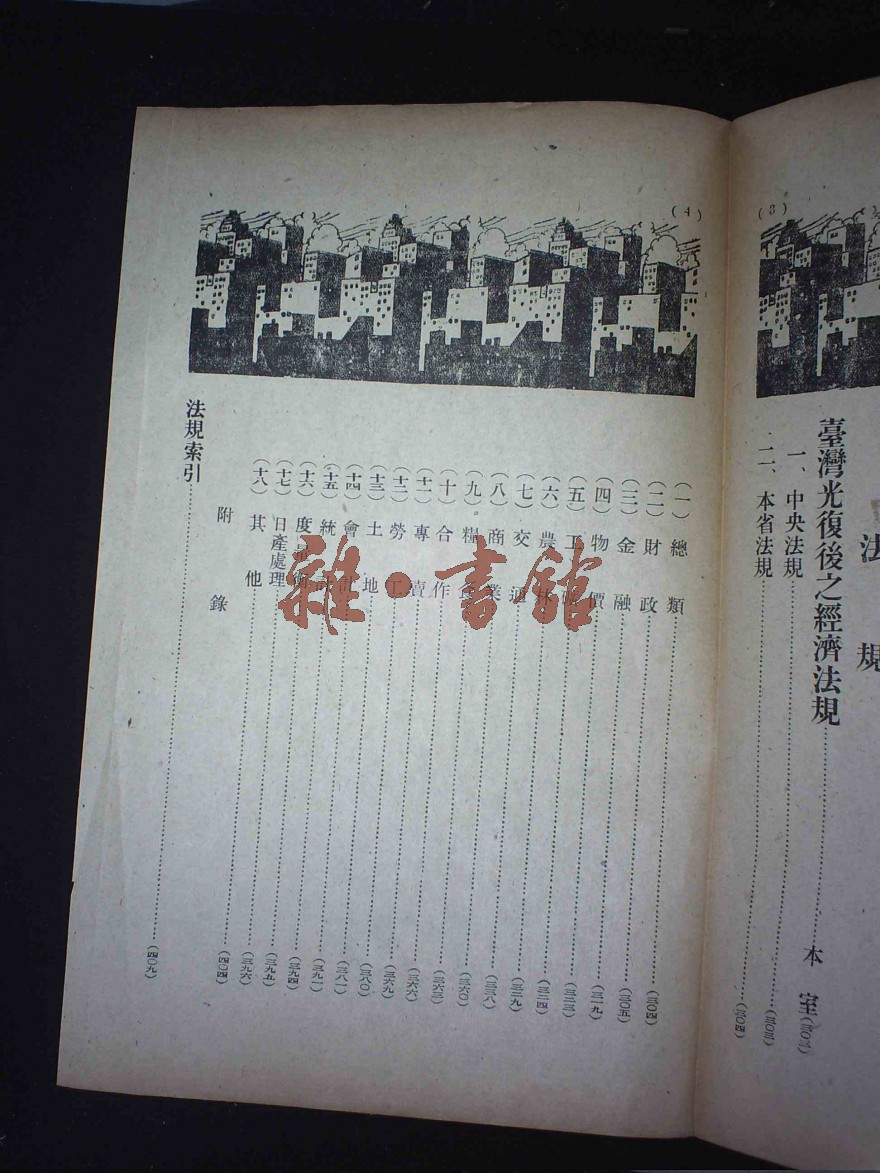 (3)
法規
臺灣光復後之經濟法規……本室(三〇三)
一、中央法規……(三〇三)
二、本省法規……(三〇四)
(4)
(一)總類……(三〇四)
(二)財政……(三〇五)
(三)金融……(三一九)
(四)物價……(三二三)
(五)工礦……(三二四)
(六)農林……(三二九)
(七)交通……(三三八)
(八)商業……(三六〇)
(九)糧食……(三六三)
(十)合作……(三六六)
(十一)專賣……(三六九)
(十二)勞工……(三八〇)
(十三)土地……(三八一)
(十四)會計……(三九一)
(十五)統計……(三九四)
(十六)度量衡……(三九五)
(十七)日產處理……(三九六)
(十八)其他……(四〇四)
附錄
法規索引……(四〇九)
雜·書館